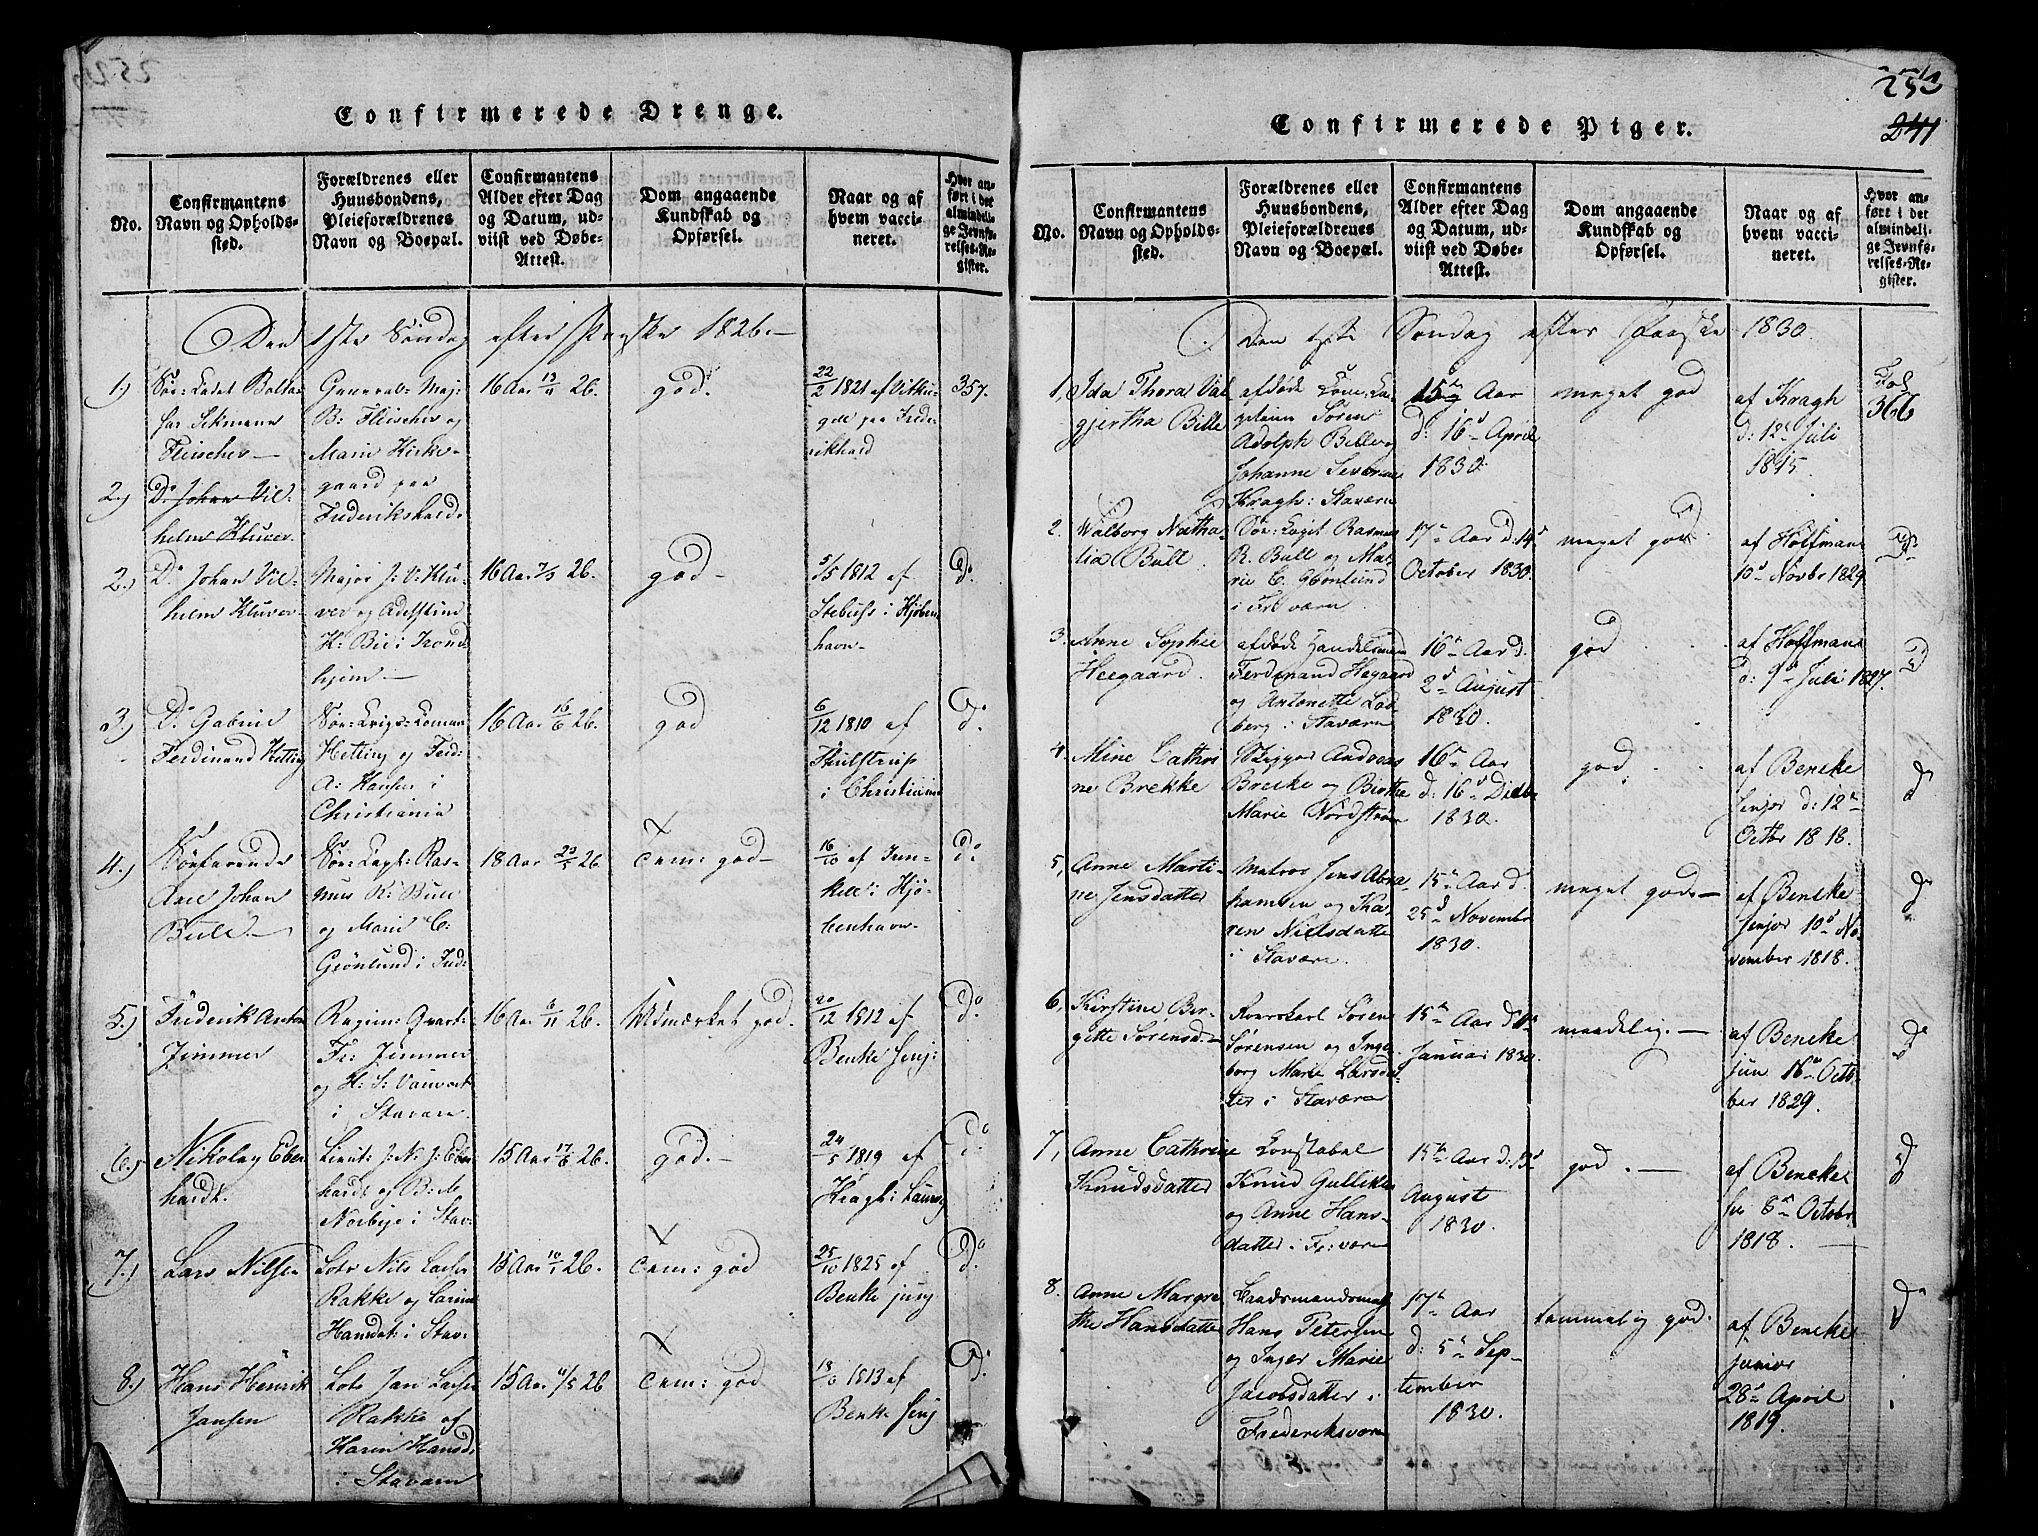 Confirmerede Drenge.
No.
Confirmantens
Navn og Opholds-
sted.
Forældrenes eller
Huusbondens,
Pleieforældrenes
Navn og Boepæl.
Confirmantens
Alder efter Dag
og Datum, ud-
viist ved Døbe-
Attest.
Dom angaaende
Kundskab og
Opførsel.
Naar og af
hvem vacci-
neret.
Hvor an-
ført i det
almindeli-
ge Jevnfø-
relses-Re-
gister.
Den 1ste Søndag efter Paaske 1826.
1.)
Søe-Cadet Baltha
sar
Fleischer
General-Maj:
B: Fleischer og
Marie Kirke-
gaard paa
Frederikshald
16 Aar 26.
god.
22/2 1821 af
paa Frede-
rikhald
357.
2.)
Do Johan Vil-
helm Klüver
2.)
Do Johan Vil-
helm Klüver
Major J: V: Klü-
ver og
K: Bie i Trond-
hjem
16 Aar 7/3 26.
god
1812 af
i Kjøben
havn
Do
3.)
Do Gabriel
Ferdinand Hetting
Hetting og
A: Hansen i
Christiania
16 Aar 16/6 26.
god
6/12 1810 af
i Christiania
Do
4.)
Søefarende
Johan
Bull
Søe-Capt: Ras-
mus R: Bull
og Marie C:
Grønlund i
18 Aar 20/5 26
Tem: god
16/10 af
i Kjø-
benhavn
Do
5.)
Frederik Anton
Zimmer
Fr: Zimmer
og H: S:
i Staværn
16 Aar 6/11 26.
Udmærket god.
20/12 1812 af
Benke Senj:
Do
6.)
Nikolay Eber
hardt.
Lieut: J: N: J: Eber
hardt og B: M
Norbye i Stav:
15 Aar 17/6 26.
god.
24/5 1819 af
Kragh i Laurv
Do
7.)
Lars Nilsen
Lods Nils Larsen
Rakke og Karine
Hansdat: i Stav:
15 Aar 10/1 26.
Tem: god
25/10 1825 af
Benke junj
Do
8.)
Hans Henrik
Jansen
Lods Jan Larsen
Rakke og
Karen Hansd:
i Staværn
15 Aar 11/5 26
Tem: god
1813 af
Benke Senj
Do
Confirmerede Piger.
253
241
No.
Confirmantens
Navn og Opholds-
sted.
Forældrenes eller
Huusbondens,
Pleieforældrenes
Navn og Boepæl.
Confirmantens
Alder efter Dag
og Datum, ud-
viist ved Døbe-
Attest.
Dom angaaende
Kundskab og
Opførsel.
Naar og af
hvem vacci-
neret.
Hvor an-
ført i det
almindeli-
ge Jevnfø-
relses-Re-
gister.
Den 1ste Søndag efter Paaske 1830.
1,
Ida Thora Val
gjertha Bille
afdøde Com: Ca-
pitain Søren
Adolph Bille og
Johanne Severine
Kragh: Staværn
15 Aar
d: 16 April
1830.
meget god
af Kragh
d: 12 Juli
1815.
Fol
366
2.
Walborg Natha-
lia Bull
Søe-Capit Rasmus
R. Bull og Ma-
rie C. Grønlund
i Fr: værn
17 Aar d: 14
October 1830.
meget god.
af Hoffman
10 Novbr 1829
Do
3.
Anne Sophie
Heegaard.
afdøde Handelsmand
Ferdinand Hegaard
og Antonette Lod
berg i Staværn
16 Aar d.
2 August
1830.
god
af Hoffman
d: 9 Juli 1827.
Do
4.
Mine Cathri
ne Brekke
Skipper Andreas
Brecke og Birthe
Marie Nordstrøm
16 Aar
d: 16 Decbr
1830.
god
af Bencke
senjor d: 12
Octbr 1818.
Do
5,
Anne Marti-
ne Jensdatter
Matros Jens Abra-
hamsen og Ka-
ren Nielsdatter
i Staværn.
15 Aar d.
25 November
1830.
meget god.
af Bencke
senjor 10 No-
vember 1818.
Do
6,
Kirstine Bir-
gitte Sørensd.
Roerskarl Søren
Sørensen og Inge-
borg Marie Larsdat-
ter i Staværn
15 Aar d 11
Januar 1830.
maadelig.
af Bencke
jun 16 Octo-
ber 1829.
Do
7,
Anne Cathrine
Knudsdatter
Constabel
Knud Gulliksen
og Anne Hans-
datter i Fr: værn
15 Aar d: 13
August
1830.
god.
af Bencke
sen 6 Octobr
1818.
Do
8.
Anne Margre
the Hansdatter
Baadsmandsmat
Hans Petersen
og Inger Marie
Jacobsdatter i
Frederiksværn
17 Aar
d: 5 Sep-
tember
1830.
temmelig god.
af Bencke
junior
28 April
1819.
Do